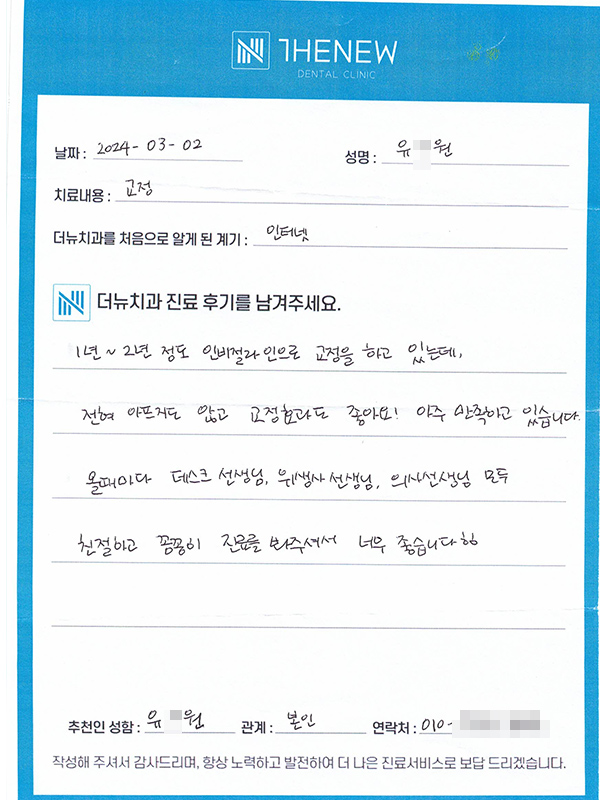 THENEW
DENTAL CLINIC
날짜 : 2024-03-02 성명 : 유 원
치료내용 : 교정
더뉴치과를 처음으로 알게 된 계기 : 인터넷
더뉴치과 진료 후기를 남겨주세요.
1년~2년 정도 인비절라인으로 교정을 하고 있는데,
전혀 아프지도 않고 교정효과도 좋아요! 아주 만족하고 있습니다.
올때마다 데스크 선생님, 위생사 선생님, 의사선생님 모두
친절하고 꼼꼼히 진료를 봐주셔서 너무 좋습니다ㅎㅎ
추천인 성함 : 유 원 관계 : 본인 연락처 : 010-
작성해 주셔서 감사드리며, 항상 노력하고 발전하여 더 나은 진료서비스로 보답 드리겠습니다.